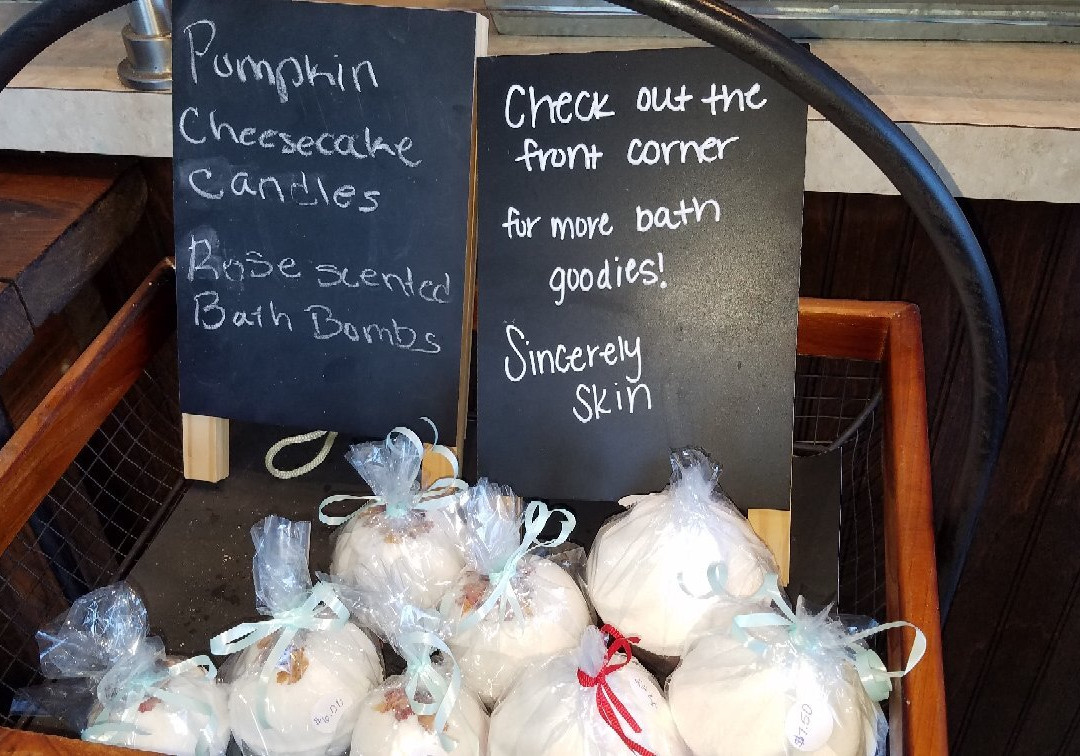 Pumpkin
Cheesecake
Candles
Rose scented
Bath Bombs
Check out the
front corner
for more bath
goodies!
Sincerely
Skin